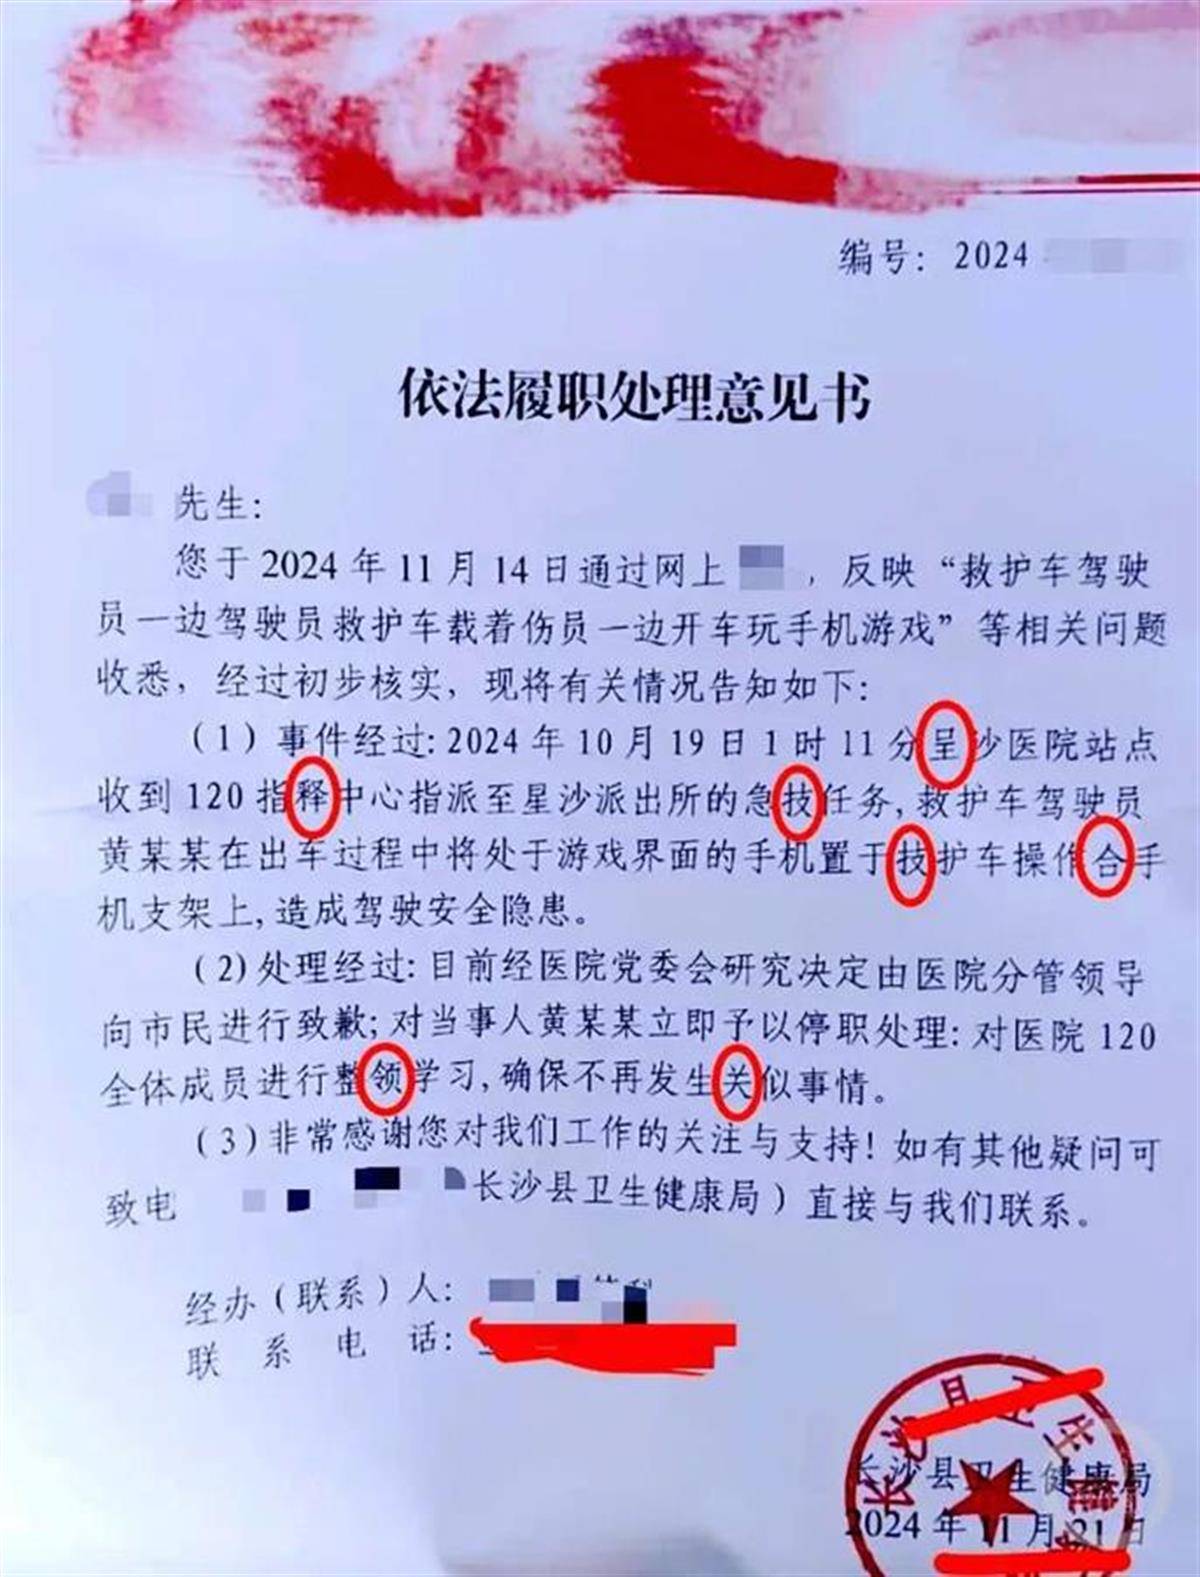 编号：2024
依法履职处理意见书
先生：
您于2024年11月14日通过网上，反映“救护车驾驶
员一边驾驶员救护车载着伤员一边开车玩手机游戏”等相关问题
收悉，经过初步核实，现将有关情况告知如下：
（1）事件经过：2024年10月19日1时11分呈沙医院站点
收到120指释中心指派至星沙派出所的急技任务，救护车驾驶员
黄某某在出车过程中将处于游戏界面的手机置于技护车操作合手
机支架上，造成驾驶安全隐患。
（2）处理经过：目前经医院党委会研究决定由医院分管领导
向市民进行致歉；对当事人黄某某立即予以停职处理：对医院120
全体成员进行整领学习，确保不再发生关似事情。
（3）非常感谢您对我们工作的关注与支持！如有其他疑问可
致电 长沙县卫生健康局）直接与我们联系。
经办（联系）人：
联系电话：
长沙县卫生健
长沙县卫生健康局
2024年11月21日